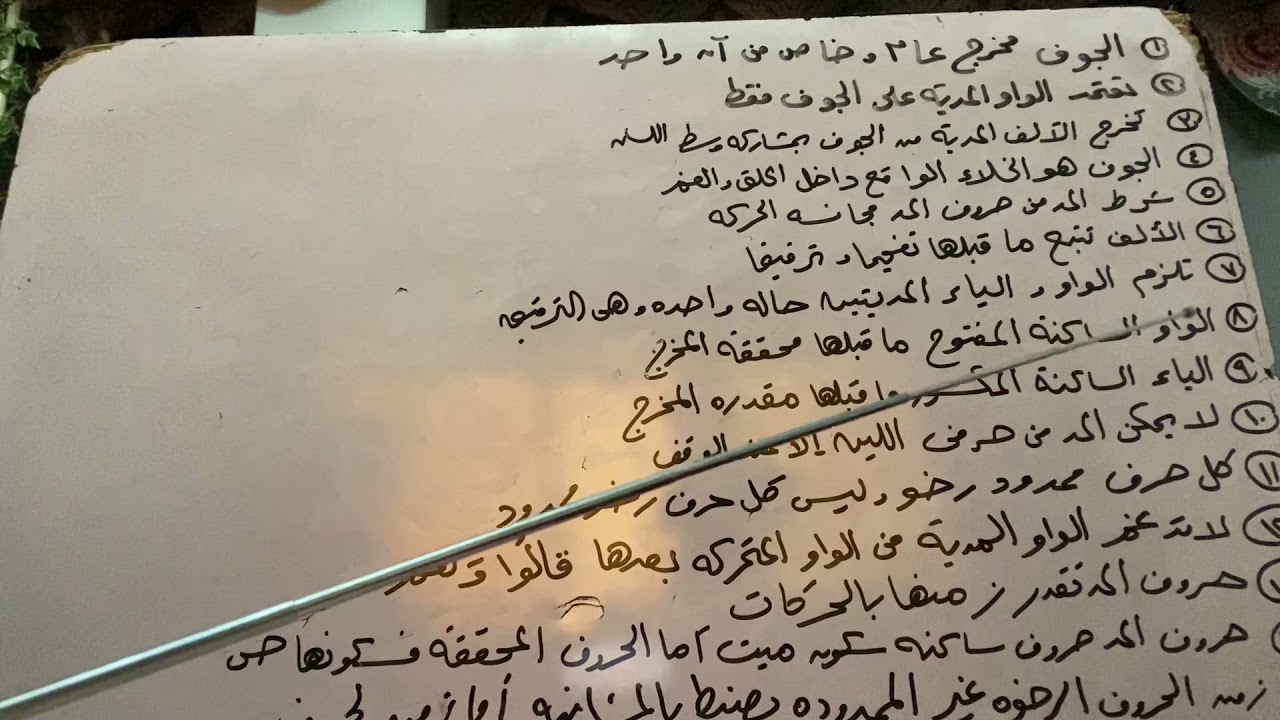 ١ الجوف مخرج عام وخاص في آن واحد
٢ تعتمد الواو المدية على الجوف فقط
٣ تخرج الألف المدية من الجوف بمشاركة وسط اللسان
٤ الجوف هو الخلاء الواقع داخل الحلق والفم
٥ شرط المد في حروف المد مجانسه الحركه
٦ الألف تتبع ما قبلها تفخيما و ترقيقا
٧ تلزم الواو و الياء المديتين حاله واحده وهى الترقيق
٨ الواو الساكنة المفتوح ما قبلها محققه المخرج
٩ الياء الساكنة المكسور ما قبلها مقدره المخرج
١٠ لا يمكن المد في حرفى اللين إلا عند الوقف
١١ كل حرف ممدود رخو وليس كل حرف رخو ممدود
١٢ لا تدغم الواو المدية في الواو المتحركه بعدها قالوا و
حروف المد تقدر زمنها بالحركات
حروف المد حروف ساكنه سكون ميت أما الحروف المحققة فسكونها حى
زمن الحروف الرخوه غير الممدوده يضبط بالمشافهه أما زمن